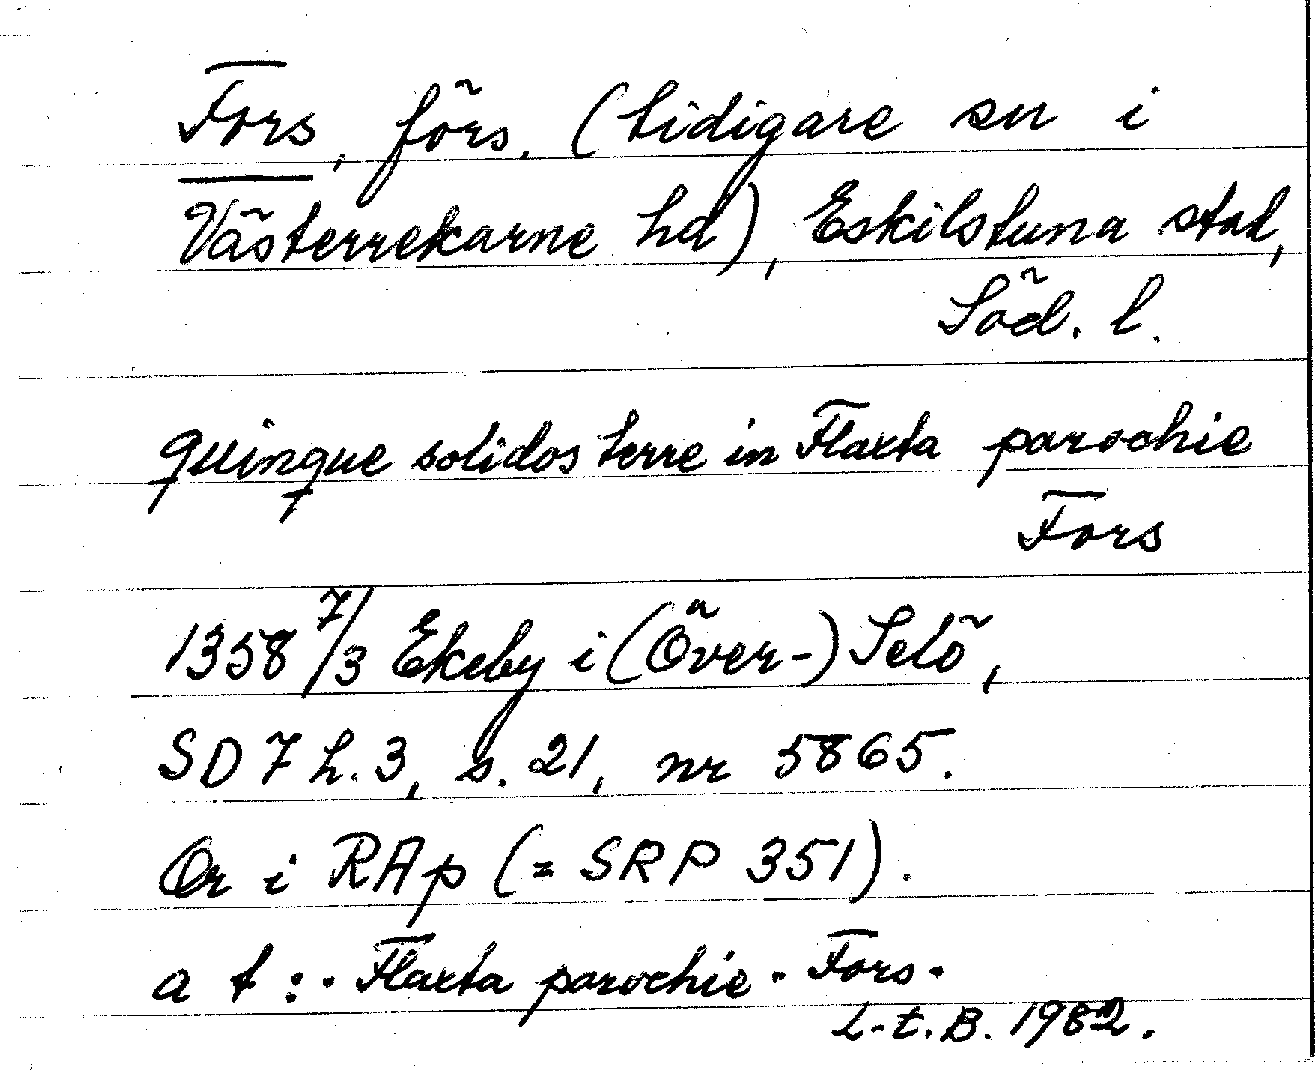 Fors, förs. (tidigare sn i
Västerrekarne hd), Eskilstuna stad,
Söd. l.
quinque solidos terre in Flaxta parochie
Fors
1358 7/3 Ekeby i (Över-) Selö,
SD 7 h. 3, s. 21, nr 5865.
Or i RAp (= SRP 351).
a t : · Flaxta parochie · Fors ·
L-t. B. 1982.